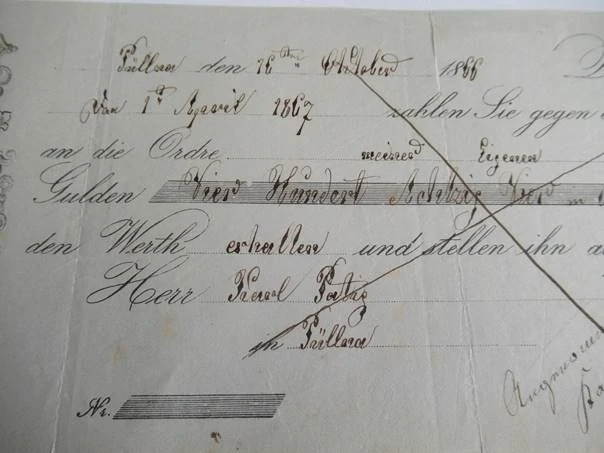 Püllna den 16ten Oktober 1866
Den 1ten April 1867 zahlen Sie gegen
an die Ordre meiner Eigenen
Gulden Vier Hundert Achtzig Vier in
den Werth erhalten und stellen ihn a
Herr Karl Patig
in Püllna
Angenom
Nr.